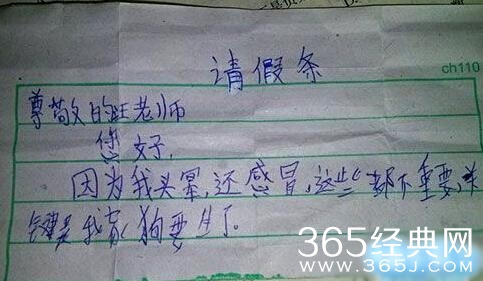 请假条
ch110
尊敬的旺老师
您好,
因为我头晕,还感冒,这些都不重要,关
键是我家狗要生了。
365经典网
www.365j.com